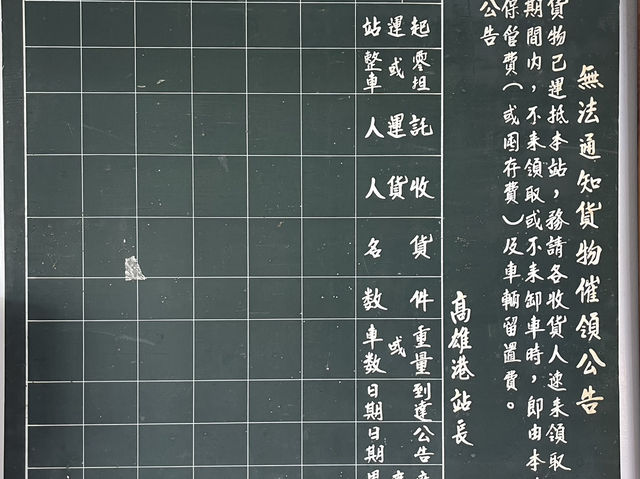 無法通知貨物催領公告
貨物已運抵本站，務請各收貨人速来領取
期間内，不来領取或不来卸車時，即由本
保管費（或囤存費）及車輛留置費。
公告
高雄港站長
起運站
零担或整車
託運人
收貨人
貨名
件数
重量或車数
到達日期
公告日期